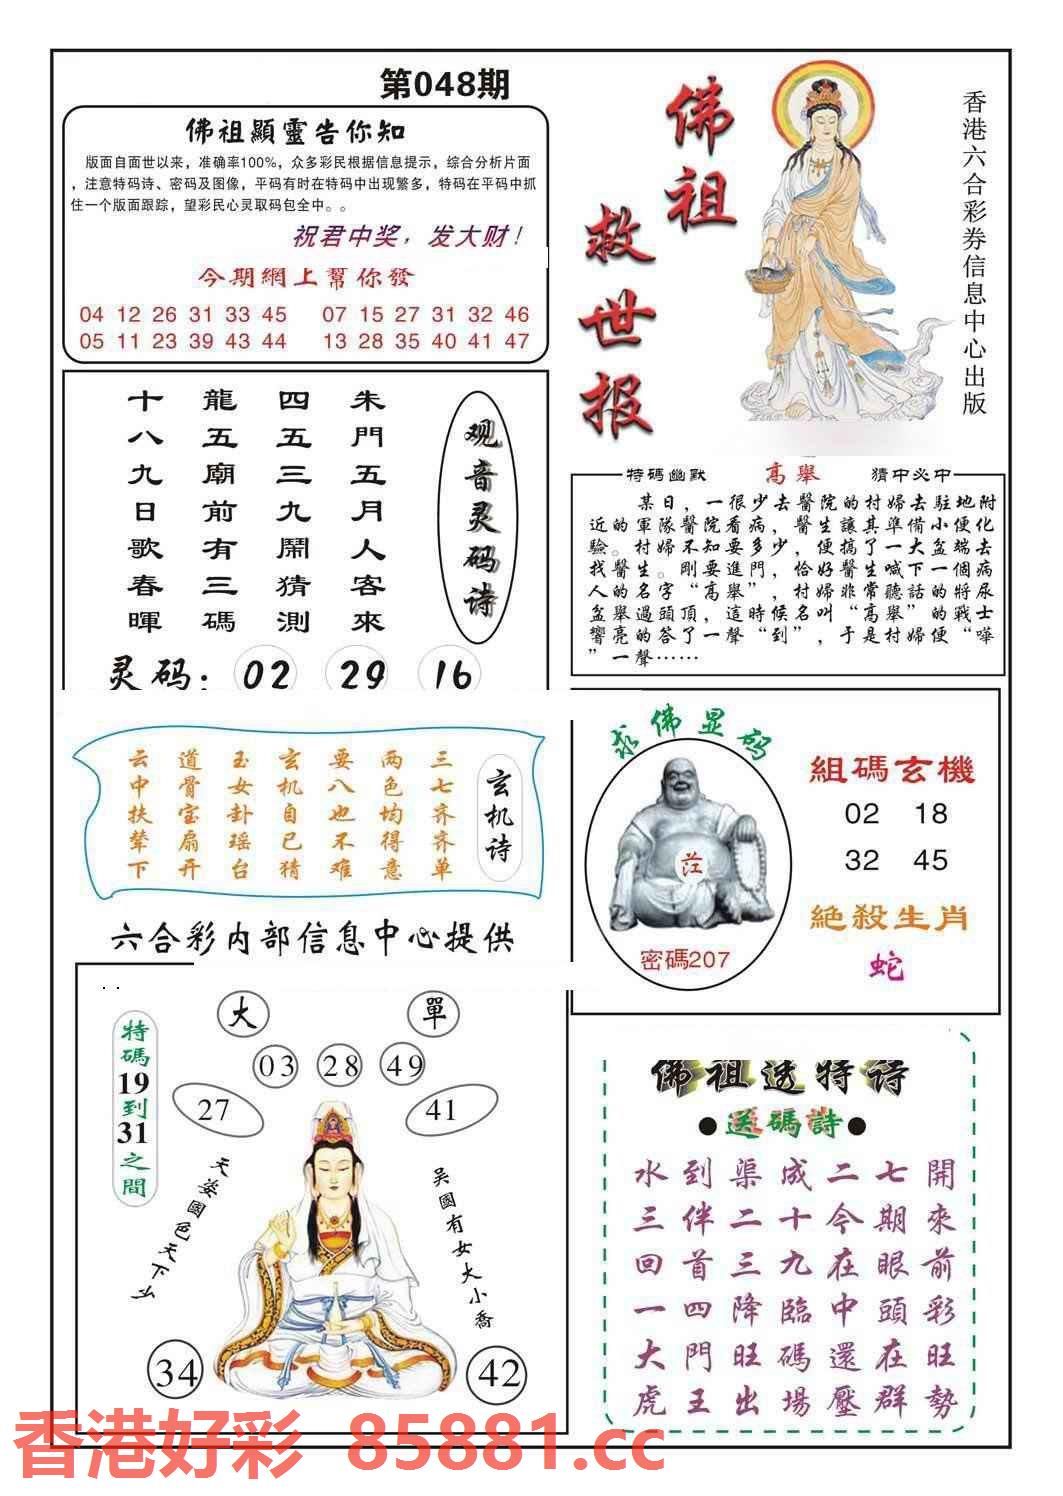 第048期
佛祖顯靈告你知
版面自面世以来，准确率100%，众多彩民根据信息提示，综合分析片面
，注意特码诗、密码及图像，平码有时在特码中出现繁多，特码在平码中抓
住一个版面跟踪，望彩民心灵取码包全中。。
祝君中奖，发大财！
今期網上幫你發
04 12 26 31 33 45 07 15 27 31 32 46
05 11 23 39 43 44 13 28 35 40 41 47
佛祖
救世报
香港六合彩券信息中心出版
观音灵码诗
朱門五月人客來
四五三九鬧猜測
龍五廟前有三碼
十八九日歌春暉
灵码：02 29 16
特碼幽默 高舉 猜中必中
某日，一很少去醫院的村婦去駐地附
近的軍隊醫院看病，醫生讓其準備小便化
驗。村婦不知要多少，便搞了一大盆端去
找醫生。剛要進門，恰好醫生喊下一個病
人的名字“高舉”，村婦非常聽話的將尿
盆舉過頭頂，這時候名叫“高舉”的戰士
響亮的答了一聲“到”，于是村婦便“嘩
”一聲……
玄机诗
三七齐齐单
两色均得意
要八也不难
玄机自已猜
玉女卦瑶台
道骨宝扇开
云中扶辇下
六合彩内部信息中心提供
求佛显码
密碼207
組碼玄機
02 18
32 45
絕殺生肖
蛇
特碼19到31之間
大 單
03 28 49
27 41
天姿國色天下少
吴國有女大小喬
34 42
佛祖透特诗
●送碼詩●
水到渠成二七開
三伴二十今期來
回首三九在眼前
一四降臨中頭彩
大門旺碼還在旺
虎王出場壓群勢
香港好彩 85881.cc